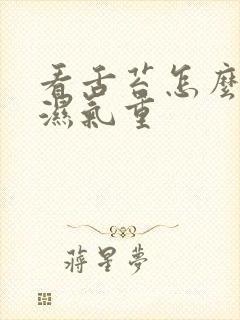 看舌苔怎麼
濕氣重
蔣星夢